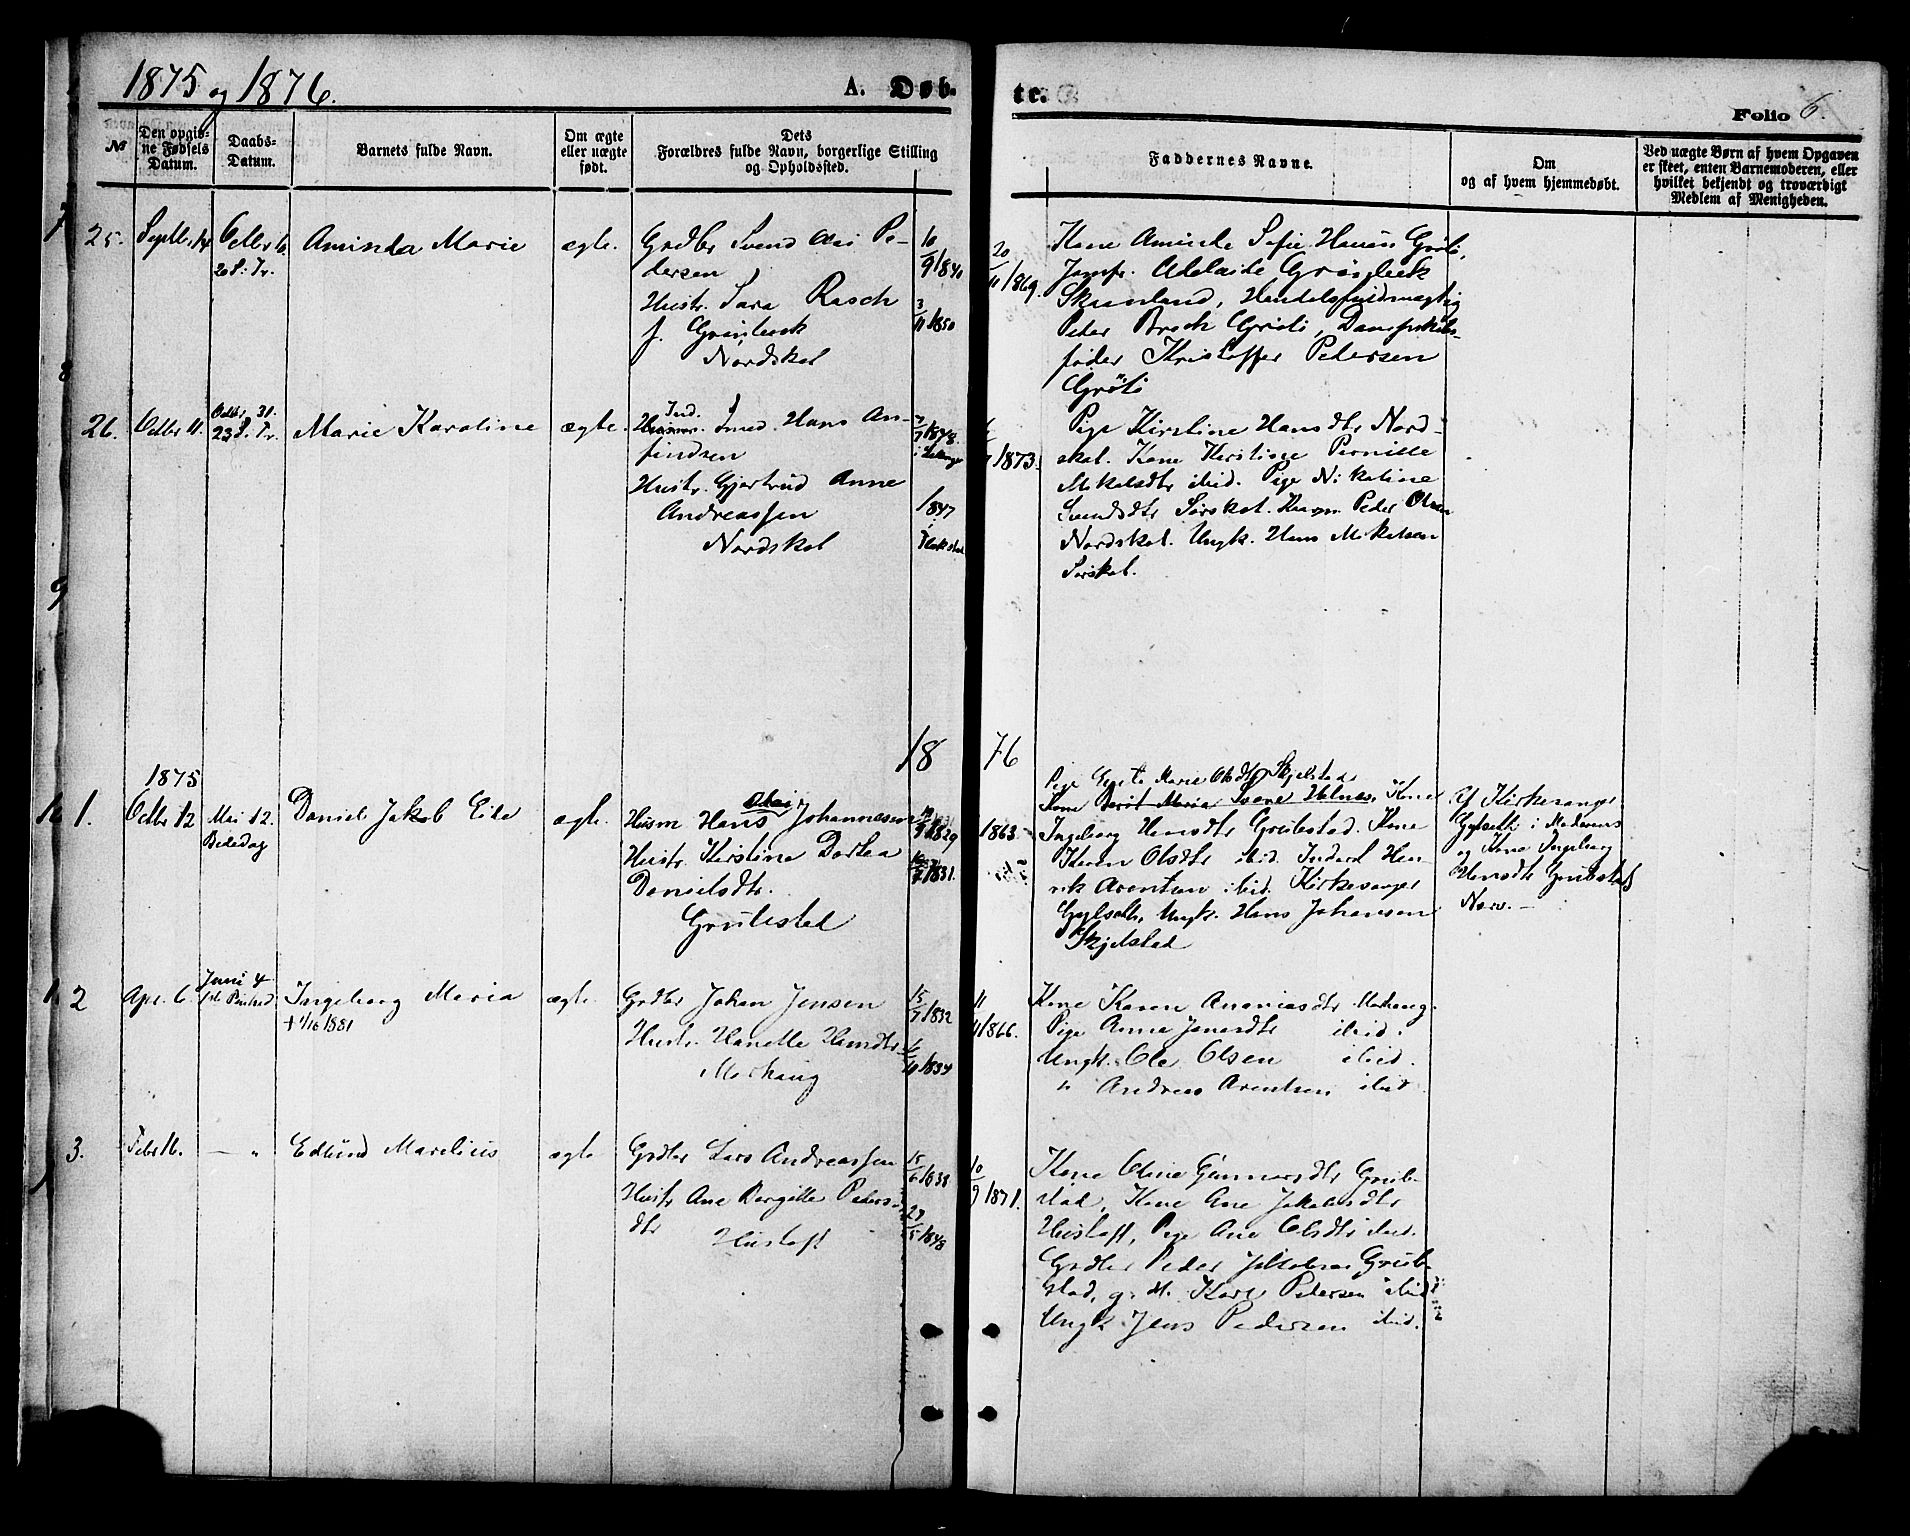 1875 og 1876.
A. Døb-
te.
Folio 6.
№
Den opgiv-
ne Fødsels
Datum.
Daabs-
Datum.
Barnets fulde Navn.
Om ægte
eller uægte
født.
Dets
Forældres fulde Navn, borgerlige Stilling
og Opholdssted.
Faddernes Navne.
Om
og af hvem hjemmedøbt.
Ved uægte Børn af hvem Opgaven
er skeet, enten Barnemoderen, eller
hvilket bekjendt og troværdigt
Medlem af Menigheden.
25.
Septbr 14
Octbr 10.
20 S. Tr.
Aminda Marie
ægte.
Grdbr Svend Pe-
dersen
Hustr. Sara Rasch
f. Grønbeck
Nordskot
10/9 1840
3/11 1850
20/11 1869.
Kone Aminda Sofie Grøti,
Jomfr. Adelaide Grønbeck
Skaanland, Handelsfuldmægtig
Peder Broch Grøti, Dampskibs-
fører Kristoffer Petersen
Grøti
26.
Octbr 11.
Octbr 31.
23 S. Tr.
Marie Karoline
ægte.
Ind.
Hans An-
findsen
Hustr. Gjertrud Anne
Andreassen
Nordskot
1848
1847
1873.
Pige Kirstine Hansdtr Nord-
skot. Kone Kirstine Pernille
Mikalsdtr ibid. Pige Nikoline
Svendsdtr Sørskot. Peder Olsen
Nordskot. Ungk. Hans Mikalsen
Sørskot.
18 76
1875
1.
Octbr 12
Mai 12.
Bededag
Daniel Jakob Eile
ægte.
Olai
Husm Hans Johannesen
Hustr. Kirstine Dortea
Danielsdtr.
Grubstad
1829
1831.
1863
Pige Marie Olsdtr Skjelstad
Kone Berit Maria Helnes, Kone
Ingeborg Hansdtr Grubstad. Kone
Karen Olsdtr ibid. Inderst Hen-
rik Arentsen ibid. Kirkesanger
Gylseth, Ungk. Hans Johansen
Skjelstad
Af Kirkesanger
Gylseth i Moderens
og Kone Ingeborg
Hansdtr Grubstads
Nærv.
2
Apr. 6.
Juni 4
1ste Pintsed
Ingeborg Maria
ægte.
Grdbr Johan Jensen
Hustr. Hanette Hansdtr
Morhaug
15/7 1832
1834
11/11 1866.
Kone Karen Ananiasdtr Morhaug
Pige Anne Jensdtr ibid.
Ungk. Ole Olsen ibid.
" Andreas Arentsen ibid.
3.
Febr 16.
— "
Edlund Marelius
ægte
Grdbr Lars Andreassen
Hustr Ane Bergitte Peders-
dtr
Husloft
15/6 1838
27/5 1848
10/9 1871.
Kone Oline Gunnarsdtr Grub-
stad, Kone Ane Jakobsdtr
Husloft, Pige Ane Olsdtr ibid.
Grdbr Peder Jakobsen Grub-
stad, g. M. Karl Petersen ibid
Ungk Jens Pedersen ibid.